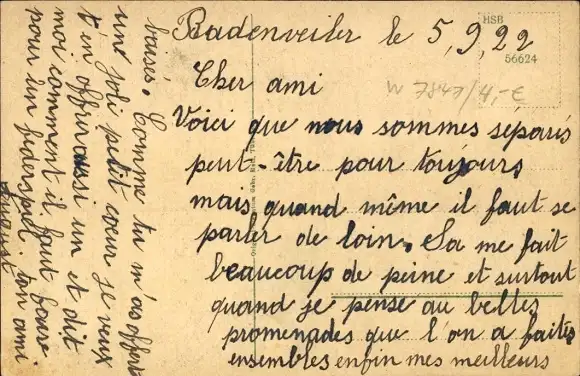 Badenveiler le 5, 9, 22
HSB
56624
W 7847/4,-€
Cher ami
Voici que nous sommes separés
peut-être pour toujours
mais quand même il faut se
parler de loin. Sa me fait
beaucoup de peine et surtout
quand je pense au belles
promenades que l'on a faites
ensembles enfin mes meilleurs
baisés. Comme tu m'as offert
une joli petit cœur je veux
t'en offrir aussi un et dit
moi comment il faut faire
pour un
August ton ami